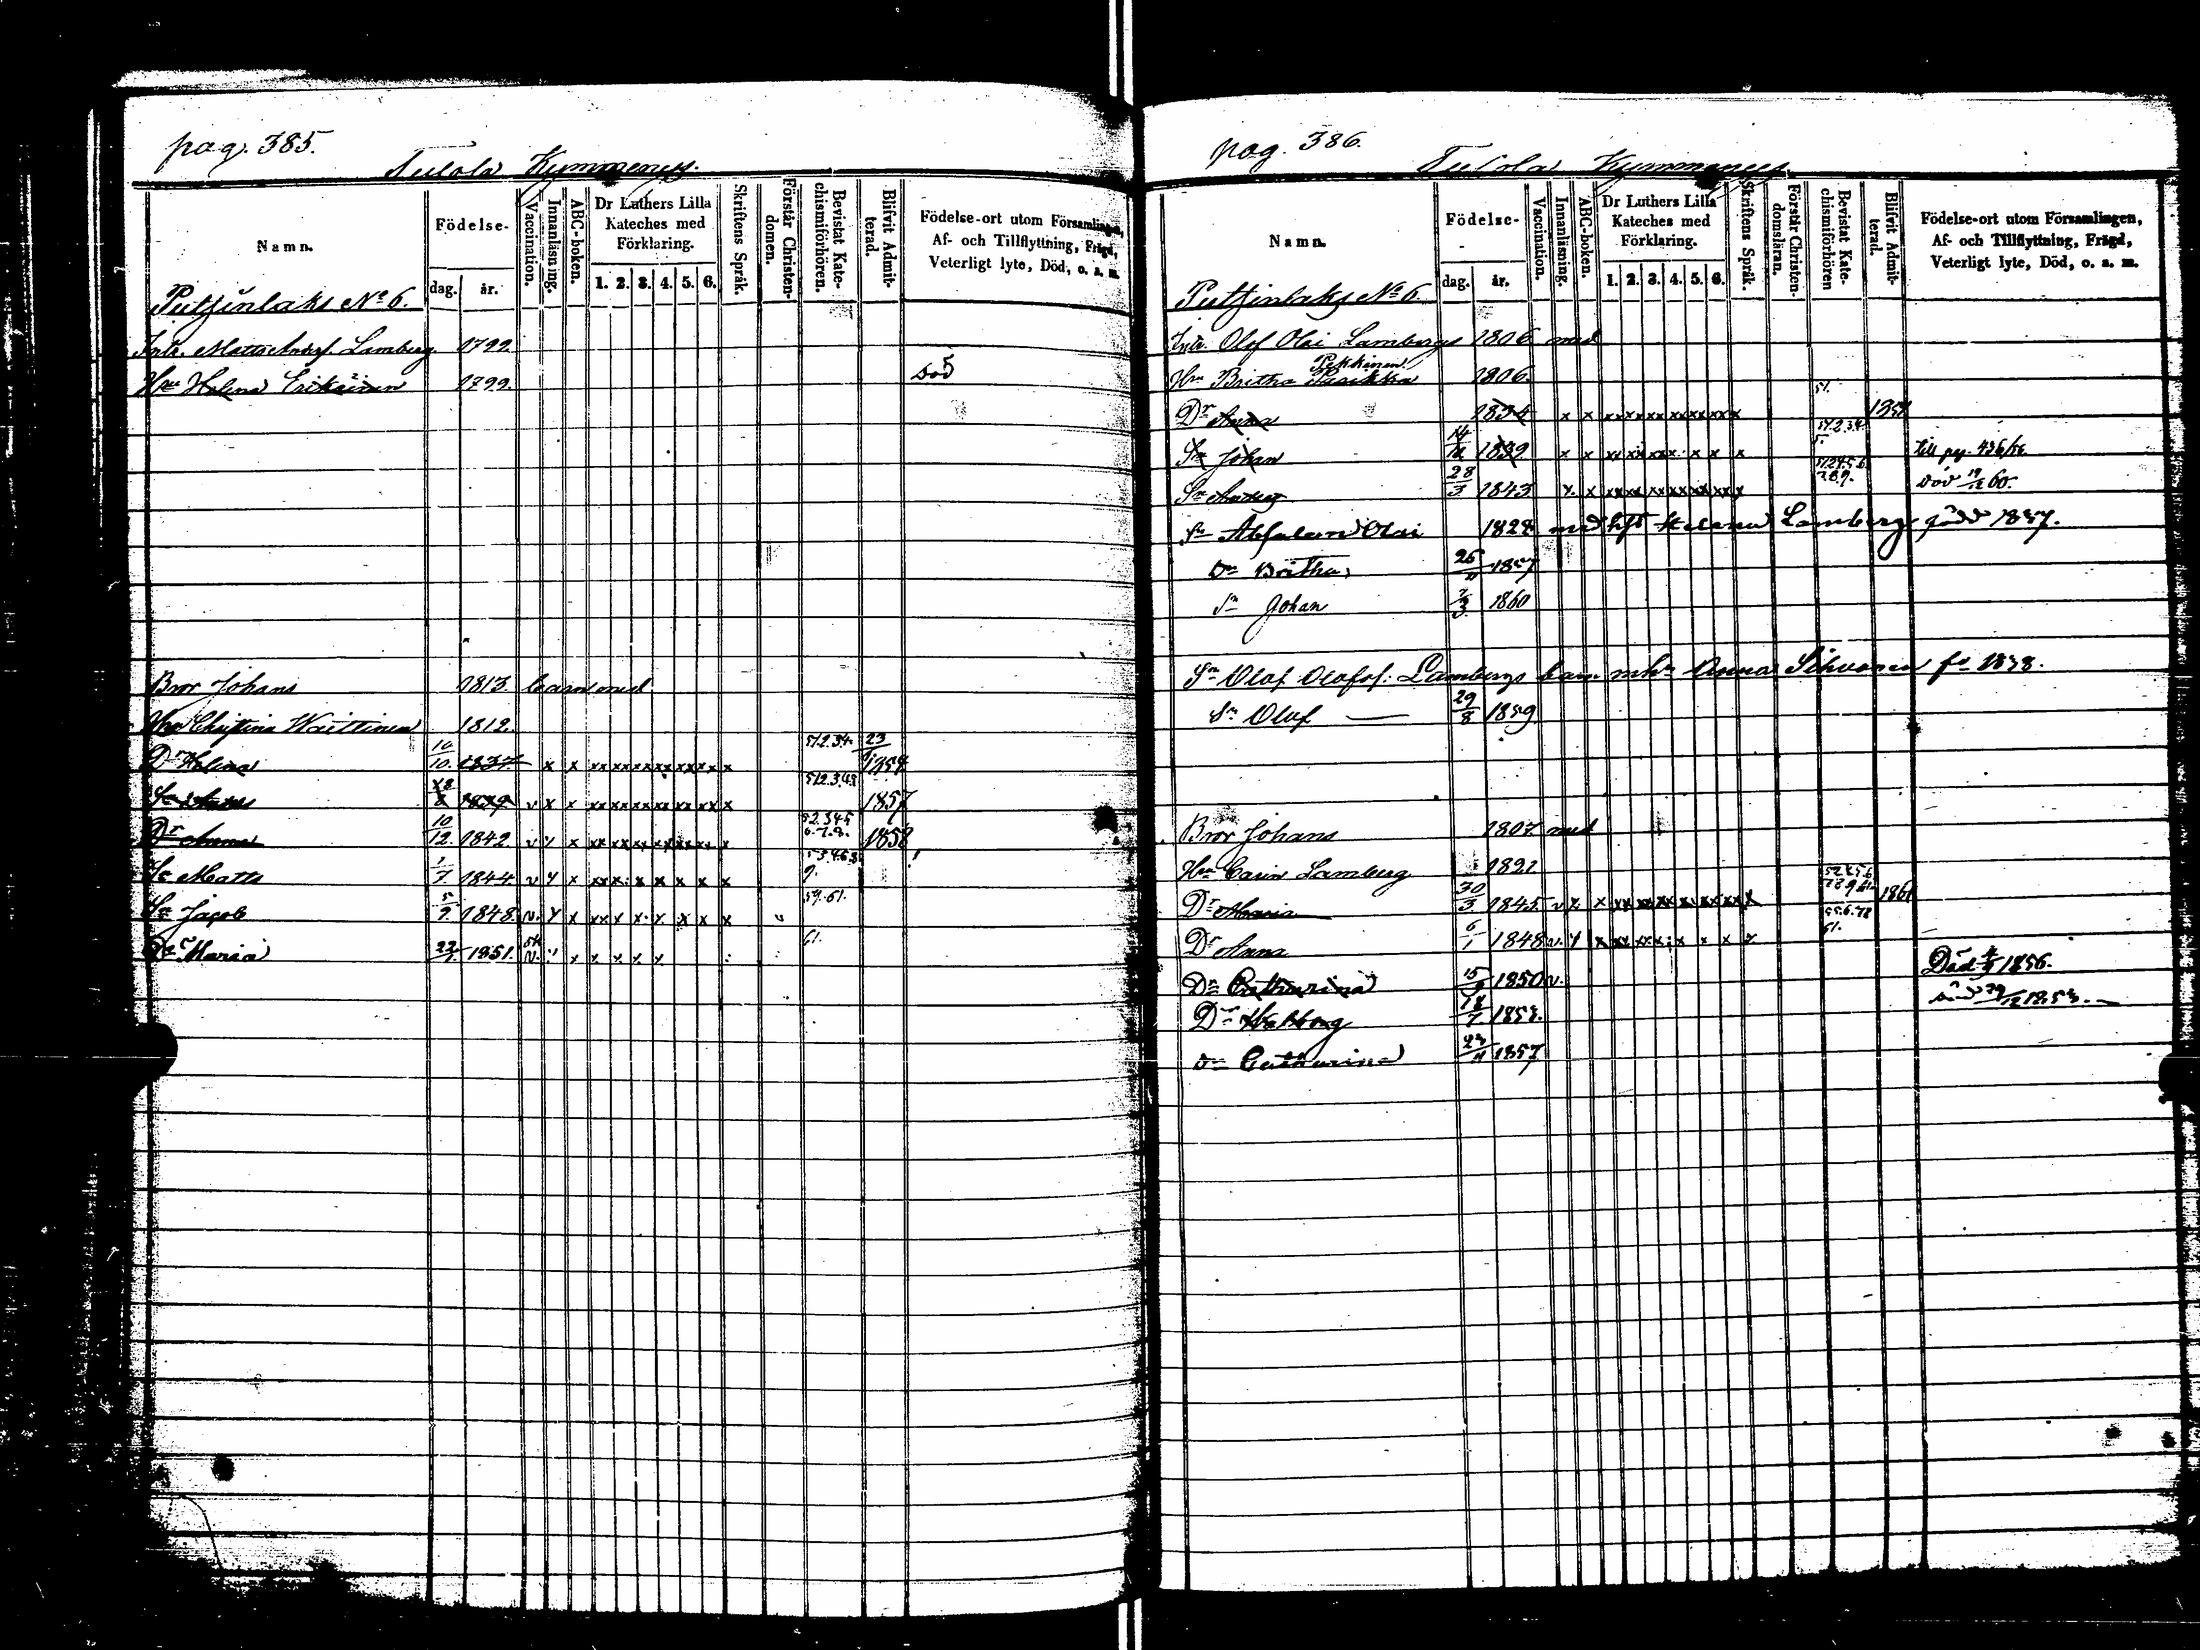 pag. 385.
Tulola Kymmenys.
Namn.
Födelse-
dag.
år.
Vaccination.
Innanläsning.
ABC-boken.
Dr Luthers Lilla Kateches med Förklaring.
1. 2. 3. 4. 5. 6.
Skriftens Språk.
Förstår Christendomen.
Bevistat Katechismiförhören.
Blifvit Admitterad.
Födelse-ort utom Församlingen,
Af- och Tillflyttning, Frägd,
Veterligt lyte, Död, o. a. m.
Putzinlaks No 6.
Matts Andrs. Lamberg 1799.
Hru Helena Erikäinen 1799. död
Bror Johans 1813. barn med
Hru Christina Waittinen 1812.
Dr Helena 10/10. 1837 x x xx xx xx xx xx x x x 512.34. 23/ 1854
1839 v x x xx xx xx xx xx xx x 512.343 1857
Dr Anna 10/12. 1842. v x 52.345 6.7.8. 1858
Sn Matts 1/7. 1844. v x x 9.
Sn Jacob 5/9. 1848. v. x x xx x x x x x x 59.61.
Dr Maria 22/ 1851. v. x x x x x 61.
pag. 386.
Tulola Kymmenys
Namn.
Födelse-
dag.
år.
Vaccination.
Innanläsning.
ABC-boken.
Dr Luthers Lilla Kateches med Förklaring.
1. 2. 3. 4. 5. 6.
Skriftens Språk.
Förstår Christendomsläran.
Bevistat Katechismiförhören
Blifvit Admitterad.
Födelse-ort utom Församlingen,
Af- och Tillflyttning, Frägd,
Veterligt lyte, Död, o. a. m.
Putzinlaks No 6.
Olof Olai Lambergs 1806 med
Pekkinen
Hru Britha 1806.
Dr Anna 1834 x x xx xx xx xx xx xx x 51. 1851
Sn Johan 14/ 1839 x x xx xx xx x x x x 51.2.34. 5. till pag. 436/
28/3 1843 x x 7.8.9. död 19/12 60.
Sn Absalom Olai 1828 med hst Helena Lamberg född 1837.
Dr Britha 26/11 1857
Sn Johan 7/3 1860
Sn Olof Olofs. Lambergs barn m hn Anna Sihvonen f. 1838.
Sn Olof 29/8 1859
Bror Johans 1807. med
Hru Carin Lamberg 1821
Dr Maria 30/3 1845. v x x 1861
Dr Anna 6/1 1848 v. x x 55.6.78 61.
Dr Catharina 15/9 1850 v. Död 1856.
Dr Walborg 18/7 1853. död 29/12 1853.
Dr Catharina 23/11 1857